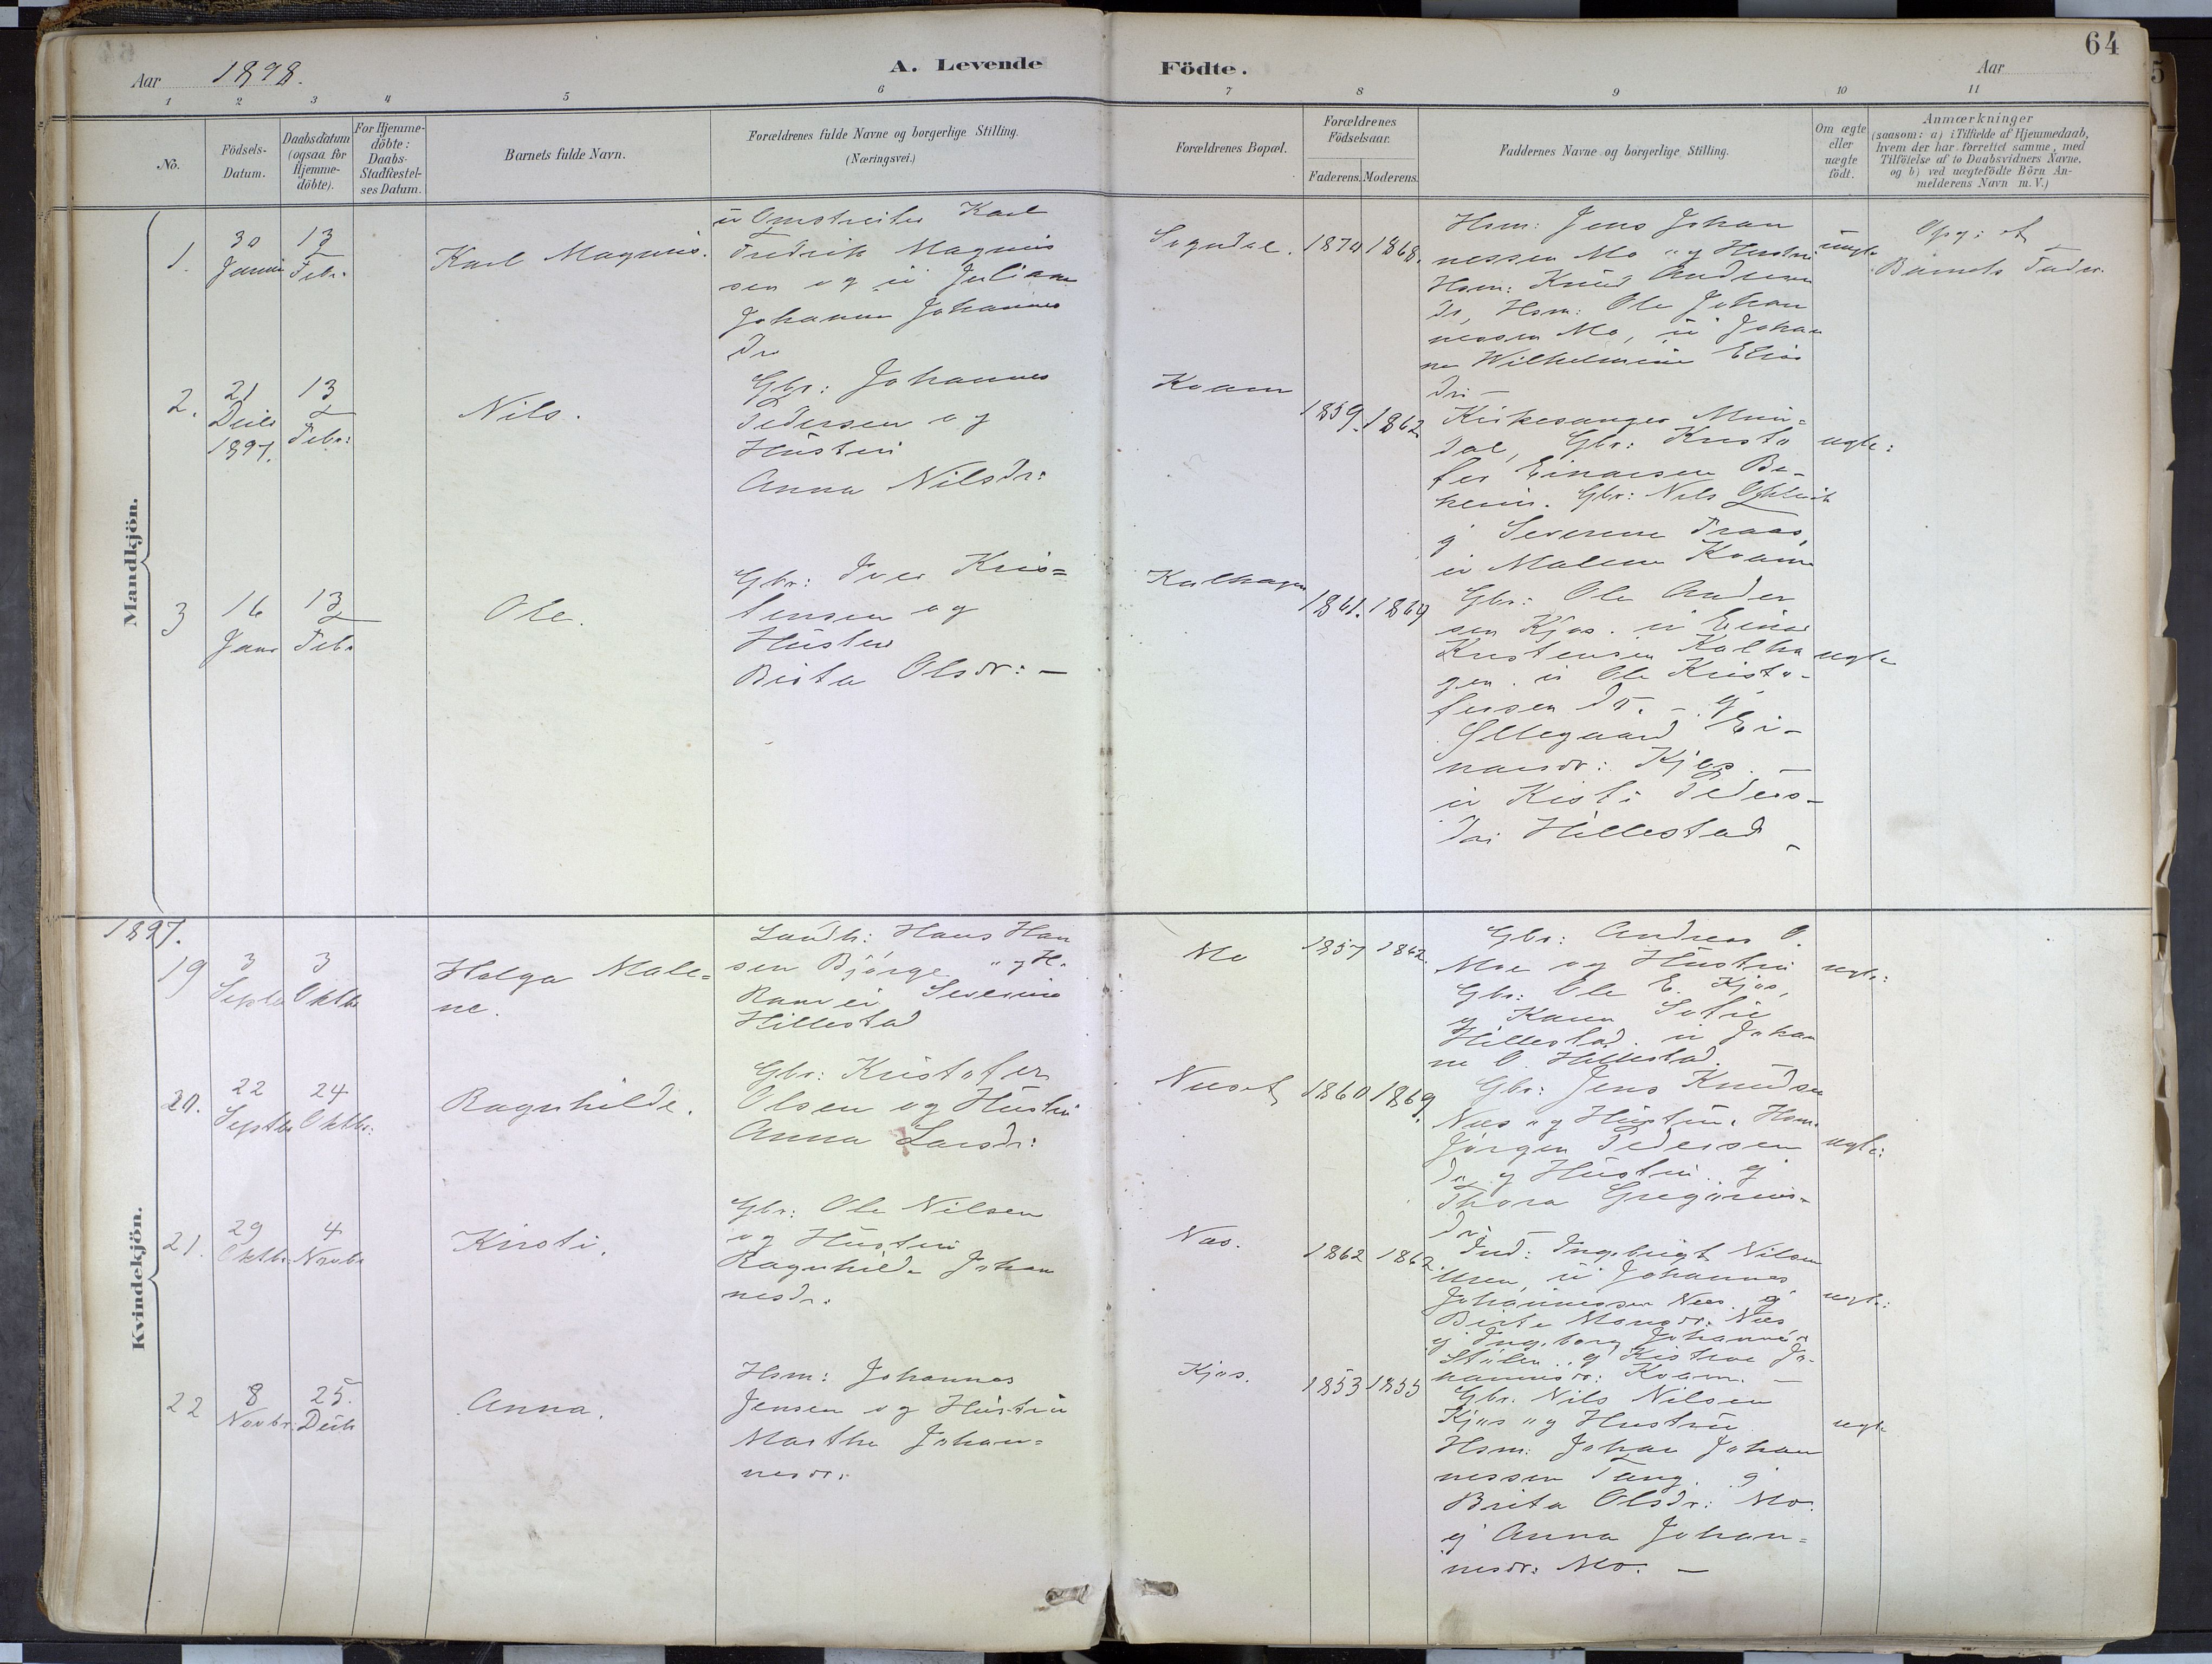 64
Aar 1898.
A. Levende Födte.
Aar
1 2 3 4 5 6 7 8 9 10 11
No.
Födsels-Datum.
Daabsdatum (ogsaa for Hjemme-döbte).
For Hjemme-döbte: Daabs-Stadfæstel-ses Datum.
Barnets fulde Navn.
Forældrenes fulde Navne og borgerlige Stilling.
(Næringsvei.)
Forældrenes Bopæl.
Forældrenes Födselsaar.
Faderens. Moderens.
Faddernes Navne og borgerlige Stilling.
Om ægte eller uægte födt.
Anmærkninger
(saasom: a) i Tilfælde af Hjemmedaab,
hvem der har forrettet samme, med
Tilföielse af to Daabsvidners Navne.
og b) ved uægtefödte Börn An-
melderens Navn m. V.)
Mandkjön.
1. 30 Januar 13 Febr.
Karl Magnus.
Karl
Fredrik Magnus
sen og Juliane
Johanne Johannes
dr
Sogndal. 1874 1868.
Hsm: Jens Johan
nessen Mo og Hustru
Hsm: Knud Andersen
do, Hsm: Ole Johan
nessen Mo, ú Johan
ne Wilhelmine Elias
dr. –
uægte
Opg: af
Barnets Fader.
2. 21 Decbr 1897. 13 Febr:
Nils.
Gbr: Johannes
Pedersen og
Hustru
Anna Nilsdr:
Kvam 1859. 1862.
Kirkesanger Mun=
dal, Gbr: Kristo
fer Einarsen Be-
heim. Gbr: Nils
g Severine
ú Malene Kvam
ægte:
3 16 Janr 13 Febr
Ole.
Gbr: Iver Kris=
tensen og
Hustru
Brita Olsdr: –
Kalhagen 1861. 1869
Gbr: Ole Ander
sen Kjøs. ú Einar
Kristensen Kalha
gen. ú Ole Kristo-
fersen do. – g
Øllegaard Ei-
narsdr: Kjøs. –
ú Kirsti Peders-
dr: Hillestad –
ægte
Kvindekjön.
1897.
19 3 Septbr 3 Oktbr
Helga Male=
ne.
Landh: Hans Han
sen Bjørge og H.
Severine
Hillestad
Mo 1857 1862.
Gbr: Andreas O.
Moe og Hustru
Gbr: Ole E. Kjøs,
g Karen Sofie
Hillestad. ú Johan
ne O. Hillestad. –
ægte:
20. 22 Septbr 24 Oktbr:
Ragnhilde.
Gbr: Kristofer
Olsen og Hustru
Anna Larsdr:
Nuset 1860 1869.
Gbr: Jens Knudsen
Næs og Hustru. Hsm:
Jørgen Pedersen
do g Hustru. g
Thora Gregorius-
dr: –
ægte:
21. 29 Oktbr. 4 Novbr
Kirsti.
Gbr: Ole Nilsen
og Hustru
Ragnhilde Johan
nesdr.
Næs. 1862 1862.
Ind: Ingebrigt Nilsen
Uren, ú Johannes
Johannessen Næs. g
Brita Monsdr: Næs,
g Ingeborg Johannesdr
Stølen. g Kistine Jo-
hannesdr: Kvam. –
ægte:
22 8 Novbr. 25. Decbr
Anna.
Hsm: Johannes
Jensen og Hustru
Marthe Johan=
nesdr.
Kjøs. 1853 1855
Gbr. Nils Nilsen
Kjøs og Hustru
Hsm: Johan Johan
nessen Tang. g
Brita Olsdr: Mo.
g Anna Johan=
nesdr: Mo. –
ægte